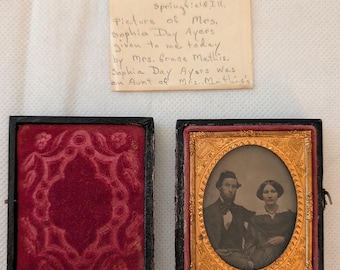 Springfield Ill.
Picture of Mrs.
Sophia Day Ayers
given to me today
by Mrs. Grace Mathis.
Sophia Day Ayers was
an Aunt of Mrs. Mathis's